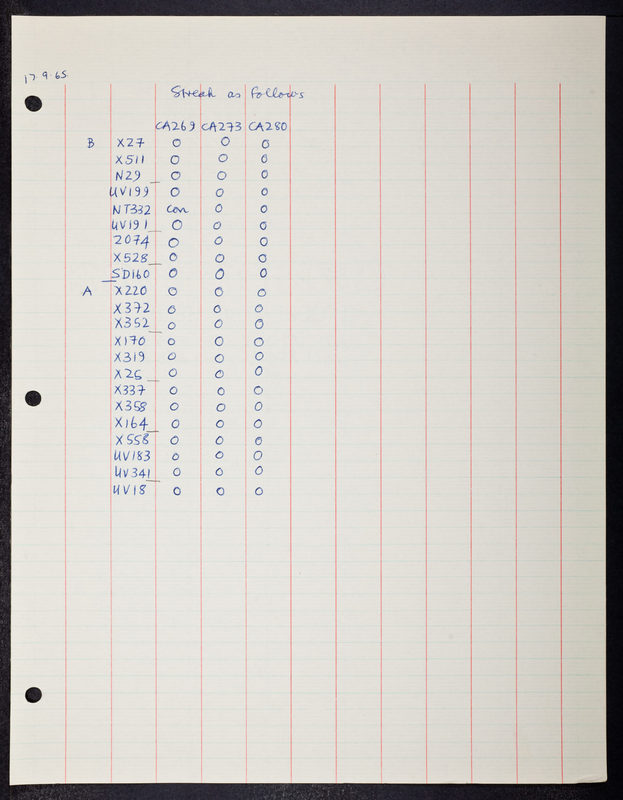 17 9.65
Streak as Follows
CA269 CA273 CA280
B X27 O O O
X511 O O O
N29 O O O
UV199 O O O
NT332 con O O
UV191 O O O
2074 O O O
X528 O O O
SD160 O O O
A X220 O O O
X372 O O O
X352 O O O
X170 O O O
X319 O O O
X25 O O O
X337 O O O
X358 O O O
X164 O O O
X558 O O O
UV183 O O O
UV341 O O O
UV18 O O O